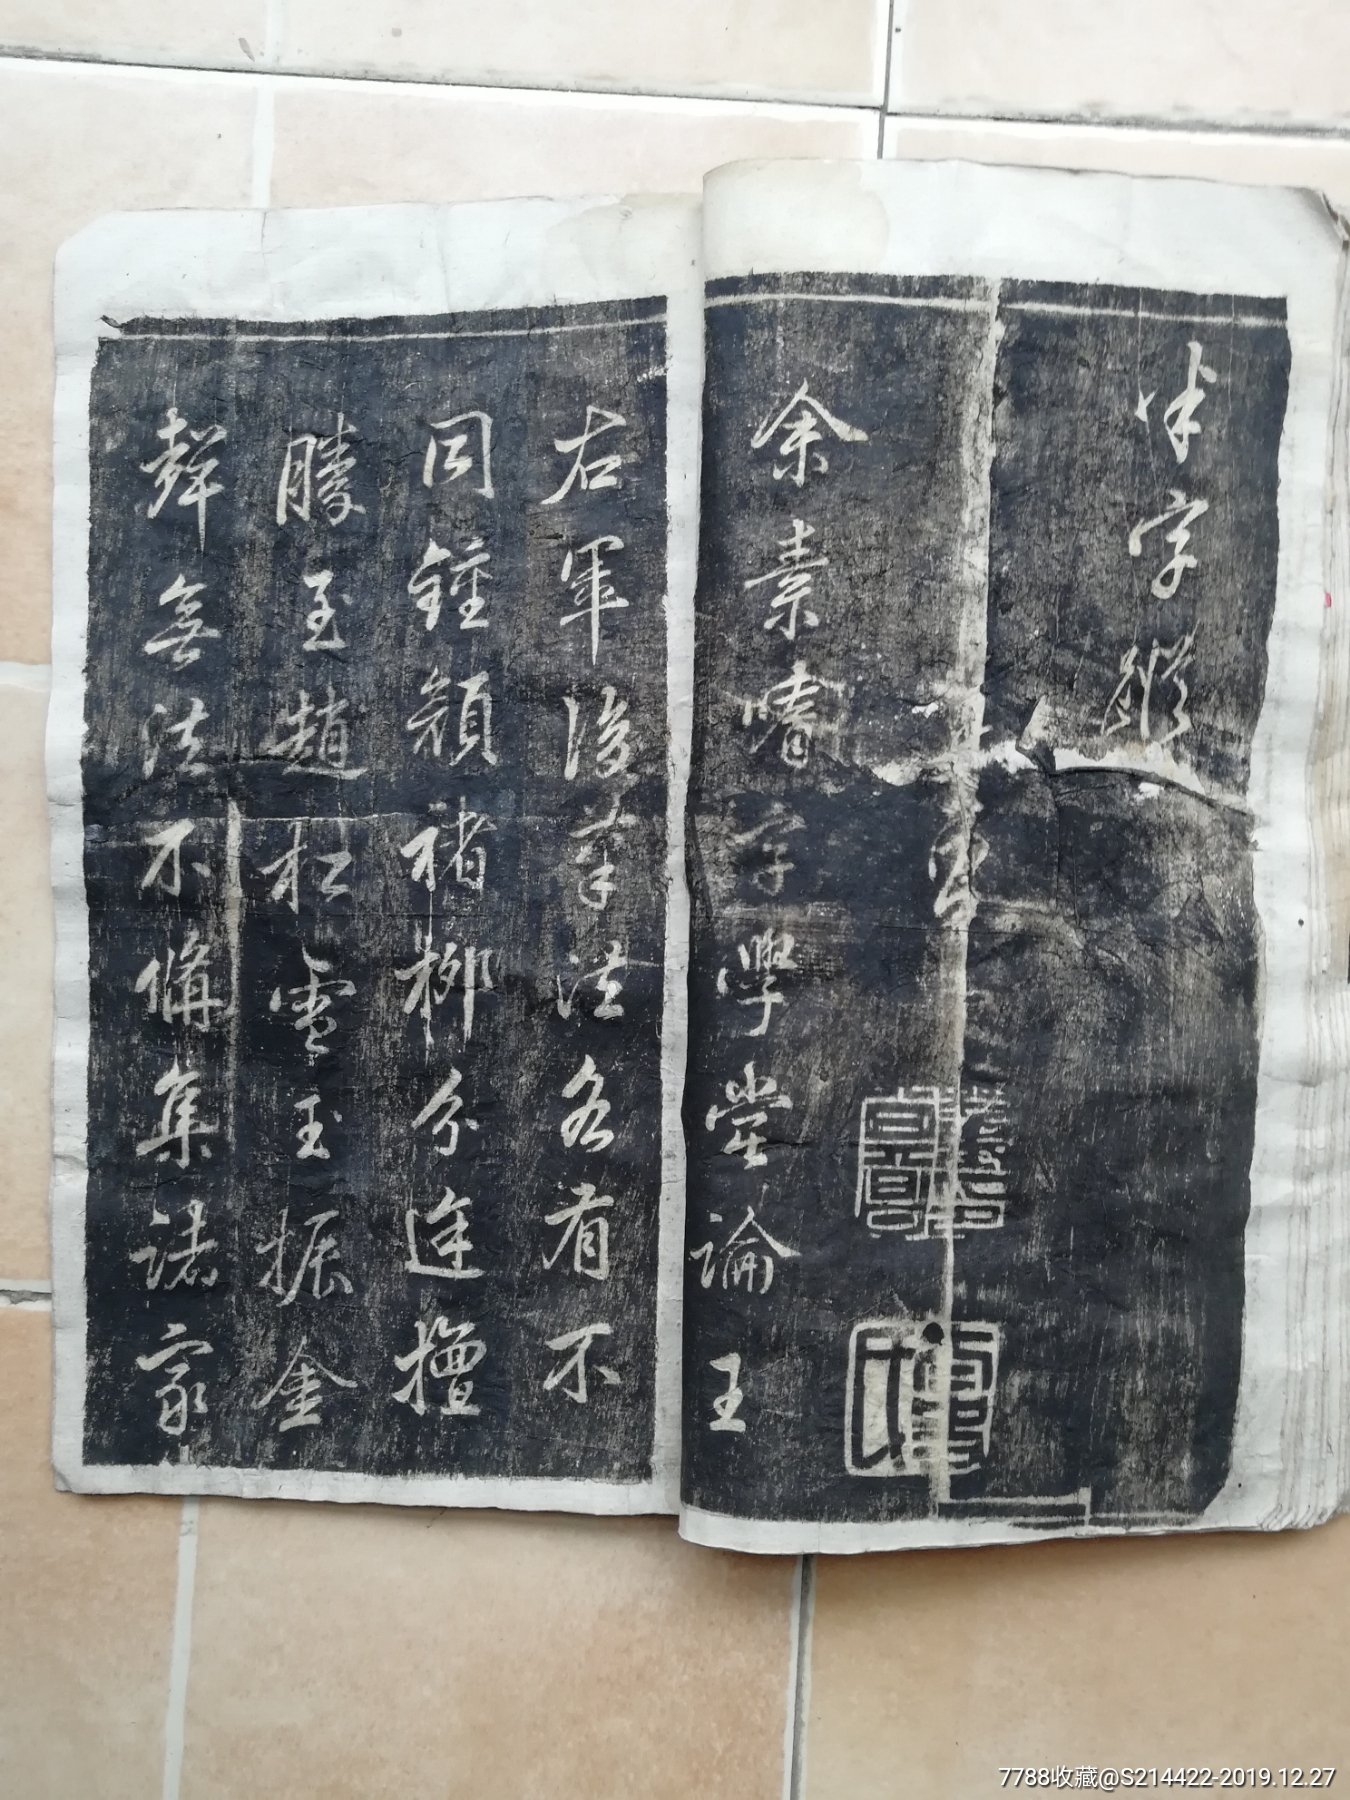 半字號
余素嗜字學嘗論王
右軍後筆法各有不
同鍾顏褚柳分途擅
勝至趙松雪玉振金
聲無法不備集諸家
7788收藏@S214422-2019.12.27